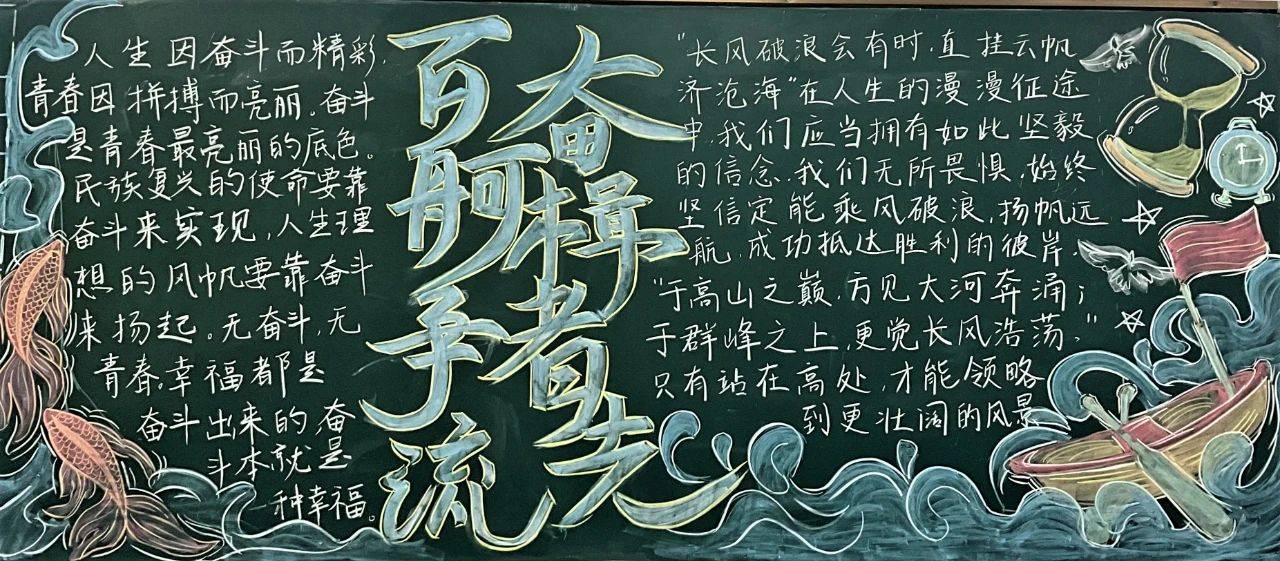 人生因奋斗而精彩,
青春因拼搏而亮丽。奋斗
是青春最亮丽的底色。
民族复兴的使命要靠
奋斗来实现,人生理
想的风帆要靠奋斗
来扬起。无奋斗,无
青春。幸福都是
奋斗出来的奋
斗本就是
一种幸福。
百舸争流
奋楫者先
“长风破浪会有时,直挂云帆
济沧海”在人生的漫漫征途
中,我们应当拥有如此坚毅
的信念,我们无所畏惧,始终
坚信定能乘风破浪,扬帆远
航,成功抵达胜利的彼岸,
“于高山之巅,方见大河奔涌;
于群峰之上,更觉长风浩荡。”
只有站在高处,才能领略
到更壮阔的风景